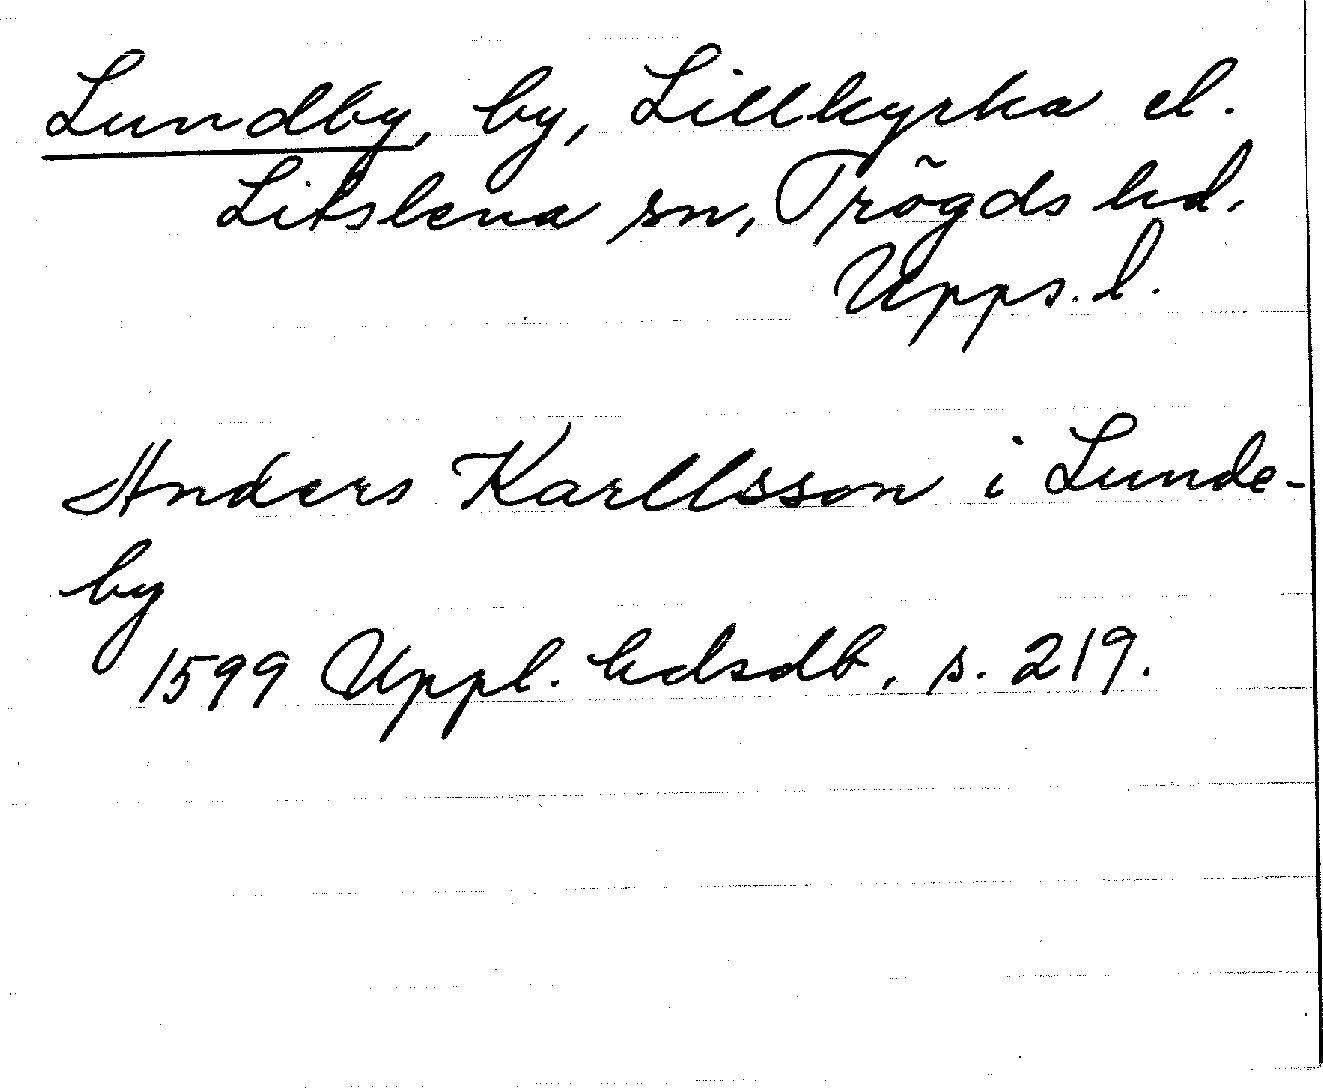 Lundby, by, Lillkyrka el.
Litslena sn, Trögds hd,
Upps. l.
Anders Karllsson i Lunde-
by
1599 Uppl. hdsdb, s. 219.